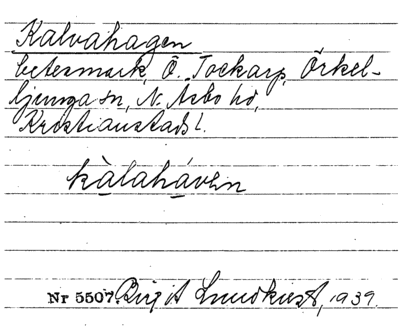 Kalvahagen
betesmark, Ö. Tockarp, Örkel-
ljunga sn, N. Åsbo hd,
Kristianstads l.
kàlaháven
Nr 5507 Birgit Lundkvist, 1939.